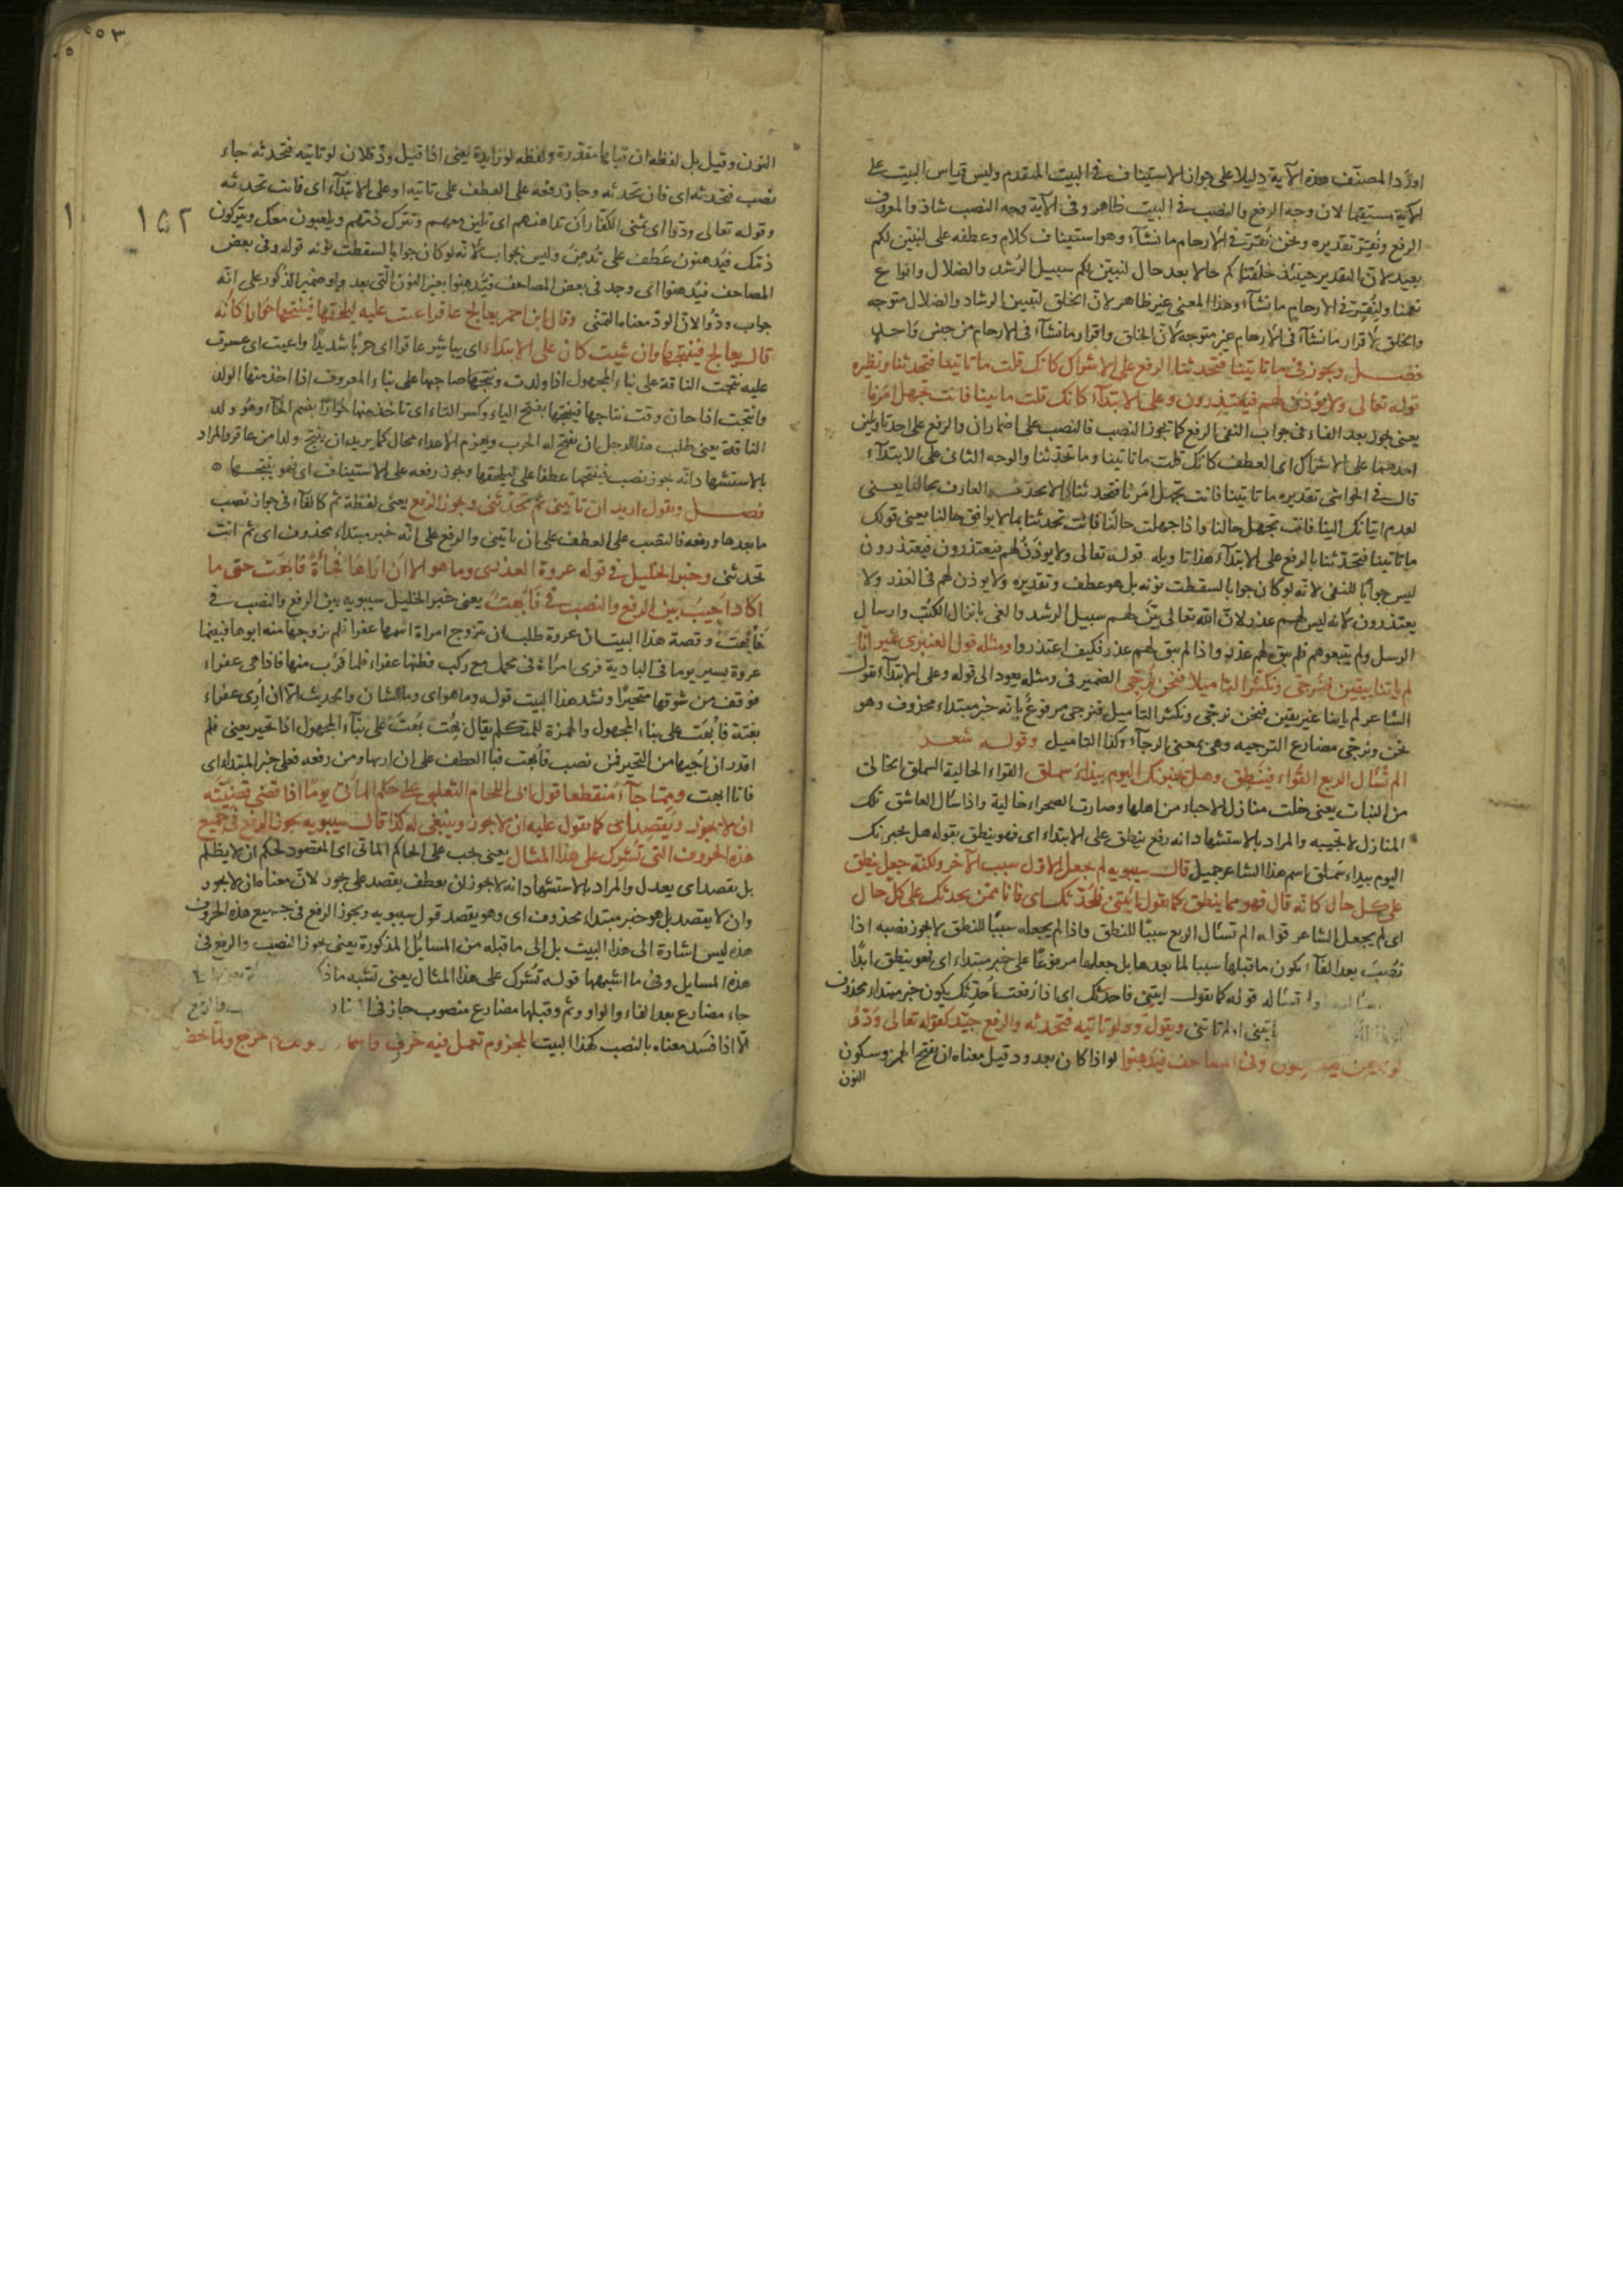 اورد المصنف هذه الآية دليلا على جواز الاستيناف في البيت المتقدم وليس قياس البيت على
الآية مستقيما لان وجه الرفع والنصب في البيت ظاهر وفي الآية وجه النصب شاذ والمعروف
الرفع ونُقِرُّ تقديره ونحن نُقرّ في الأرحام ما نشآء وهو استيناف كلام وعطفه على لنبيّن لكم
بعيد لانّ التقدير حينئذ خلقناكم حالا بعد حال لنبيّن لكم سبيل الرُشد والضلال وانواع
نعمنا ولنُقِرّ في الارحام ما نشآء وهذا المعنى غير ظاهر لانّ الخلق لتبيين الرشاد والضلال متوجه
والخلق لاقرار ما نشآء في الأرحام غير متوجه لأنّ الخلق واقرار ما نشآء في الارحام من جنس واحد
فصل ويجوز في ما تاتينا فتحدثنا الرفع على الاشراك كانك قلت ما تاتينا فتحدثنا ونظيره
قوله تعالى ولا يؤذن لهم فيعتذرون وعلى الابتدآء كانك قلت ما تاتينا فانت تجهل امرنا
يعني يجوز بعد الفاء في جواب النفي الرفع كما يجوز النصب فالنصب على اضمار ان والرفع على احد تاويلين
احدهما على الاشراك اي العطف كانك قلت ما تاتينا وما تحدثنا والوجه الثاني على الابتدآء
قال في الحواشي تقديره ما تاتينا فانت تجهل امرنا فتحدثنا العارف بحالنا يعني
لعدم اتيانك الينا فانت تجهل حالنا واذا جهلت حالنا فانت تحدثنا بما لا يوافق حالنا يعني قولك
ما تاتينا فتحدثنا بالرفع على الابتدآء هذا تاويله قوله تعالى ولا يوذن لهم فيعتذرون فيعتذرون
ليس جوابًا للنفي لانّه لو كان جوابا لسقطت نونه بل هو عطف وتقديره ولا يوذن لهم في العُذر ولا
يعتذرون لانه ليس لهم عذر لانّ الله تعالى بيّن لهم سبيل الرشد والغي بانزال الكتب وارسال
الرسل ولم يتبعوهم فلم يبق لهم عذر واذا لم يبق لهم عذر فكيف اعتذروا ومثله قول العنبري غير انّا
لم ياتنا بيقين فنُرجّي ونكثر التاميلا فنحن نرجّي الضمير في ومثله يعود الى قوله وعلى الابتدآء يقول
الشاعر لم ياتنا غير يقين فنحن نرجّي ونكثر التاميل فنرجي مرفوعٌ بانه خبر مبتداء محذوف وهو
نحن ونرجّي مضارع الترجيه وهي بمعنى الرجآء وكذا التاميل وقوله شعر
الم تسأل الربع القَواء فينطق وهل يُخبِرَنك اليوم بيداءُ سملق القواء الخالية السملق الخالي
من النبات يعني خلت منازل الاحباء من اهلها وصارت الصحراء خالية واذا سال العاشق تلك
المنازل لا تجيبه والمراد بالاستشهاد انه رفع ينطق على الابتداء اي فهو ينطق بقوله هل يخبرنك
اليوم بيداء سملق اسم هذا الشاعر جميل قال سيبويه لم يجعل الاول سبب الآخر ولكنه جعله ينطق
على كل حال كانه قال فهو مما ينطق كما يقول ائتني فأُحدّثك اي فانا ممّن يحدثك على كل حال
اي لم يجعل الشاعر قوله الم تسال الربع سببًا للنطق واذا لم يجعله سببًا للنطق لا يجوز نصبه اذا
نُصِبَ بعد الفآء يكون ما قبلها سببا لما بعدها بل جعلها مرفوعًا على خبر مبتداء اي فهو ينطق ابدًا
تساله قوله كما يقول ايتني فاحدثك اي اذا رفعت فأُحدّثك يكون خبر مبتداء محذوف
تاتني ويقول ودّ لو تاتيه فتحدثه والرفع جيّد كقوله تعالى وَدّوا
لو تدهن وفي المصاحف فيُدهنوا لو اذا كان بعد ود قيل معناه ان بفتح الهمز وسكون
النون
٢٥٣
١٥٢
النون وقيل بل لفظه ان قبلها مقدرة ولفظه لو زايدة يعني اذا قيل ودّ فلان لو تاتيه فتحدثه جاء
نصب فتحدثه اي فان تحدثه وجاز رفعه على العطف على تاتيه او على الابتدآء اي فانت تحدثه
وقوله تعالى ودّوا اي تمنى الكفّار أن تداهنهم اي تلين معهم وتترك ذمّهم ويلعبون معك ويتركون
ذمّك فيُدهنون عُطف على تُدهِنُ وليس بجواب لأنّه لو كان جوابا لسقطت نونه قوله وفي بعض
المصاحف فيُدهنوا اي وجد في بعض المصاحف فيُدهنوا بغير النون التي بعد واو ضمير الذكور على انّه
جواب ودّوا لانّ الودّ معناه التمني وقال ابن احمر يعالج عاقرا اعيت عليه ليلقحها فينتجها حُوارا كانه
قال يعالج فينتجها وان شيت كان على الابتداء اي يباشر عاقرا اي حربًا شديدًا واعيت اي عسرت
عليه نتجت الناقة على بناء المجهول اذا ولدت ونتجها صاحبها على بناء المعروف اذا اخذ منها الولد
وانتجت اذا حان وقت نتاجها فينتجها بفتح الياء وكسر التاء اي تاخذ منها حُوارًا بضم الحآء وهو ولد
الناقة يعني طلب هذا الرجل ان يفتح له الحرب ويهزم الاعداء محال كما يريد ان ينتج ولدا من عاقر والمراد
بالاستشهاد انّه يجوز نصب فينتجها عطفا على ليلقحها ويجوز رفعه على الاستيناف اي فهو ينتجها
فصل ويقول اريد ان تاتيني ثم تحدثني ويجوز الرفع يعني لفظة ثم كالفآء في جواز نصب
ما بعدها ورفعه فالنصب على العطف على ان تاتيني والرفع على انّه خبر مبتداء محذوف اي ثم انت
تحدثني وخيّر الخليل في قوله عروة العذري وما هو الا أن اَراهَا فُجأَةً فأبهَت حتى ما
اكاد اُجيبُ بين الرفع والنصب في فأبهتُ يعني خيّر الخليل سيبويه بين الرفع والنصب في
فأبهتَ وقصة هذا البيت ان عروة طلب ان يتزوج امراة اسمها عفرا فلم يزوجها منه ابوها فبينما
عروة يسير يوما في البادية فرى امراة في محمل مع ركب فظنّها عفراء فلما قرُب منها فاذا هي عفراء
فوقف من شوقها متحيرًا وانشد هذا البيت قوله وما هو اي وما الشان والحديث الّا ان أرى عفراء
بغتة فأبهَت على بناء المجهول والهمزة للمتكلم يقال بُهِت يُبهَت على بنآء المجهول اذا تحير يعني فلم
اقدر ان اُجيبها من التحير فمن نصب فأبهت فبالعطف على ان اراها ومن رفعه فعلى خبر المبتداء اي
فانا ابهت وممّا جآء منقطعا قول ابي اللحام التغلبي على الحكم المأتي يومًا اذا قضى قضيّته
ان لا يجوز ويقصدُ اي كما يقول عليه ان لا يجوز وينبغي له كذا قال سيبويه يجوز الرفع في جميع
هذه الحروف التي تُشرِك على هذا المثال يعني يجب على الحاكم الماتي اي المقصود لحكم ان لا يظلم
بل يقصد اي يعدل والمراد بالاستشهاد انه لا يجوز ان يعطف يقصد على يجوز لانّ معناه ان لا يجور
وان لا يقصد بل هو خبر مبتداء محذوف اي وهو يقصد قول سيبويه ويجوز الرفع في جميع هذه الحروف
هذه ليس اشارة الى هذا البيت بل الى ما قبله من المسائل المذكورة يعني يجوز النصب والرفع في
هذه المسايل وفي ما اشبهها قوله تُشرك على هذا المثال يعني تشبه ما
جاء مضارع بعد الفاء والواو وثم وقبلها مضارع منصوب جاز في والرفع
الّا اذا فسد معناه بالنصب كهذا البيت المجزوم تعمل فيه حرف